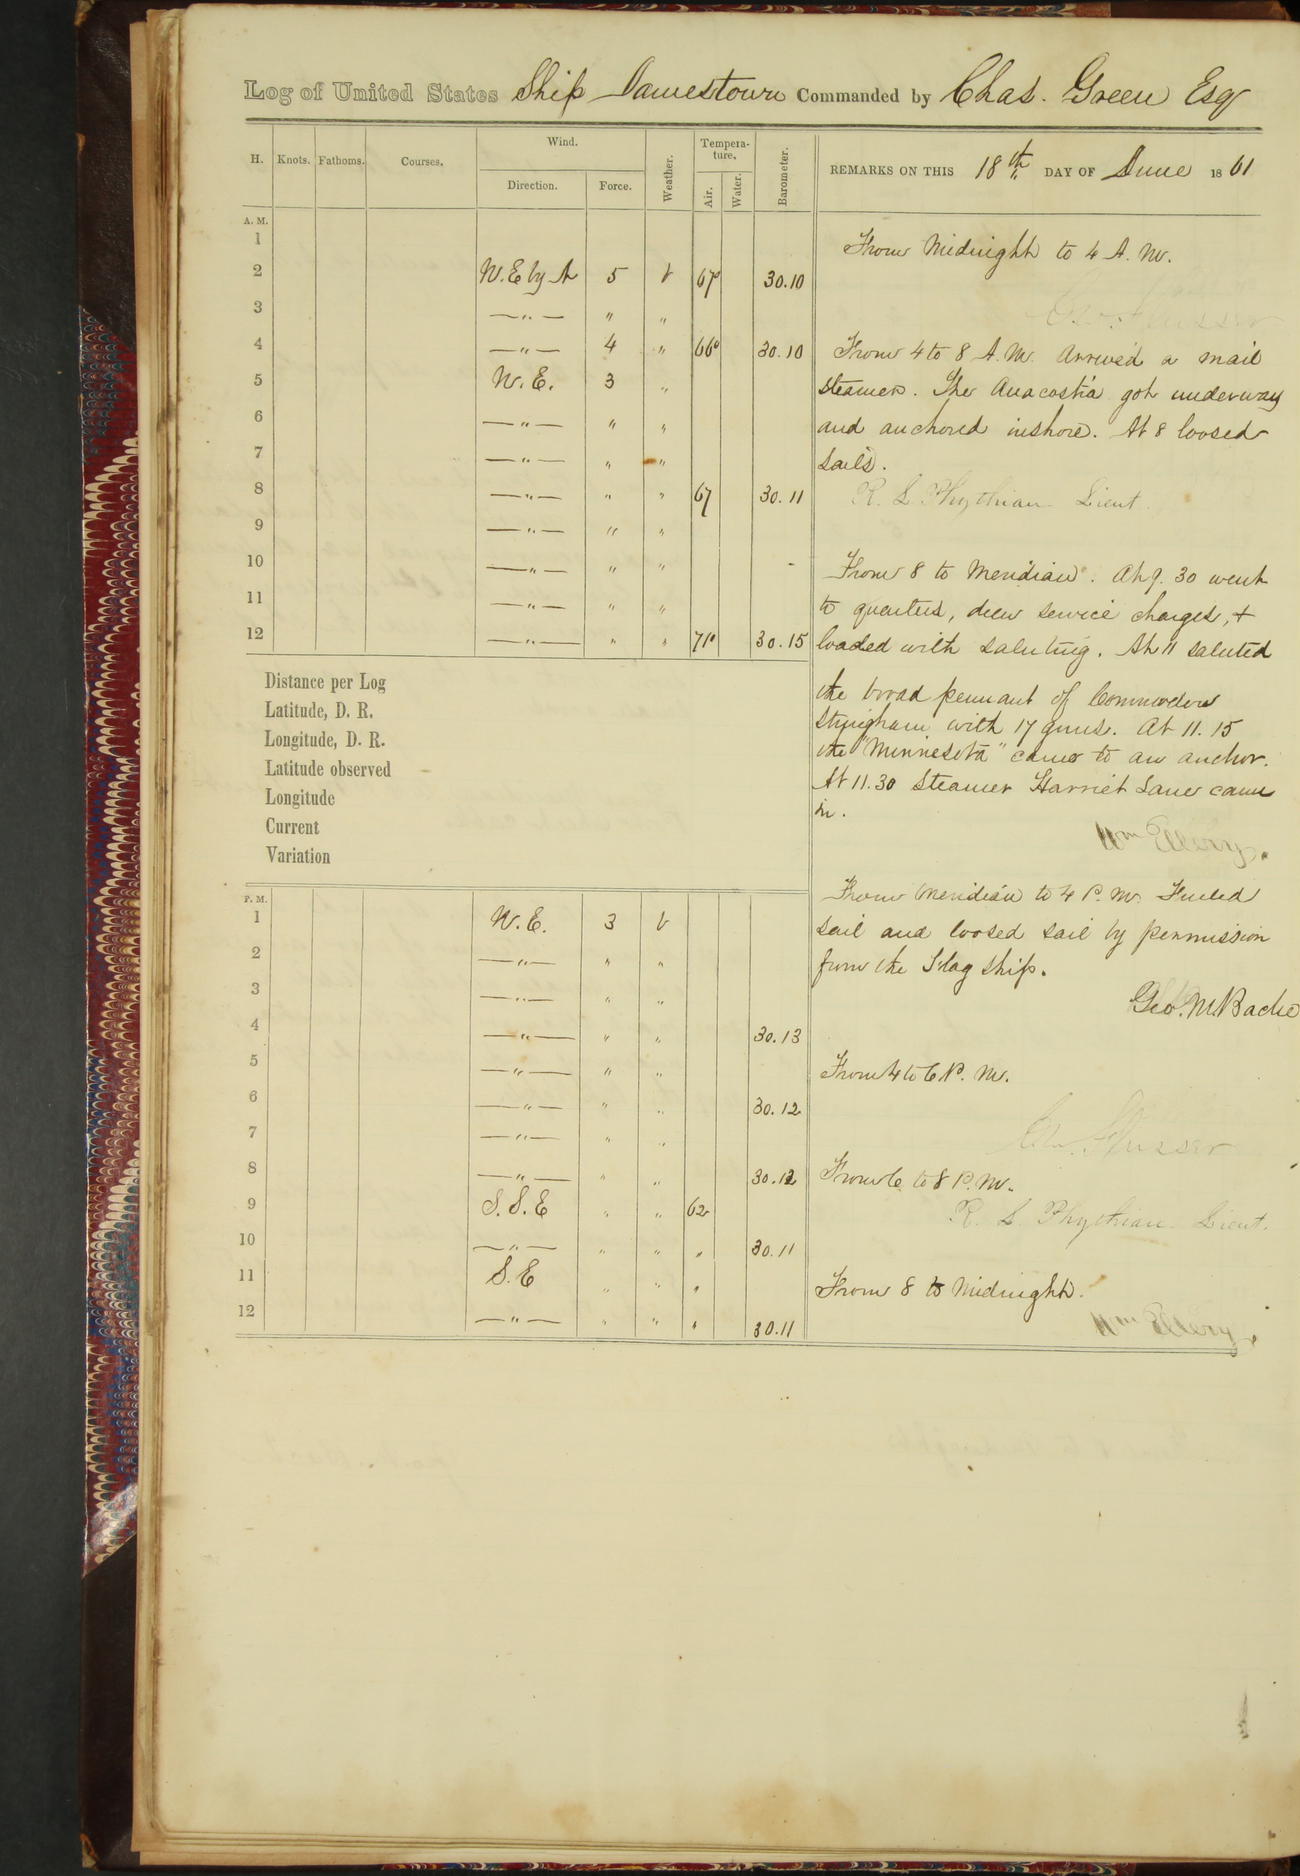 Log of United States Ship Jamestown Commanded by Chas. Green Esqr
H. Knots. Fathoms. Courses. Wind. Direction. Force. Weather. Temperature. Air. Water. Barometer.
REMARKS ON THIS 18th DAY OF June 1861
A. M.
1
2 N.E by N 5 b 67° 30.10
3 —〃— 〃 〃
4 —〃— 4 〃 66° 30.10
5 N.E. 3 〃
6 —〃— 〃 〃
7 —〃— 〃 〃
8 —〃— 〃 〃 67 30.11
9 —〃— 〃 〃
10 —〃— 〃 〃
11 —〃— 〃 〃
12 —〃— 〃 〃 71° 30.15
Distance per Log
Latitude, D. R.
Longitude, D. R.
Latitude observed
Longitude
Current
Variation
P. M.
1 N.E. 3 b
2 —〃— 〃 〃
3 —〃— 〃 〃
4 —〃— 〃 〃 30.13
5 —〃— 〃 〃
6 —〃— 〃 〃 30.12
7 —〃— 〃 〃
8 —〃— 〃 〃 30.12
9 S.S.E 〃 〃 62
10 —〃— 〃 〃 〃 30.11
11 S.E 〃 〃 〃
12 —〃— 〃 〃 〃 30.11
From Midnight to 4 A.M.
Flusser
From 4 to 8 A.M. Arrived a mail
steamer. The Anacostia got underway
and anchored inshore. At 8 loosed
sails.
R. L. Phythian Lieut.
From 8 to Meridian. At 9.30 went
to quarters, drew service charges, +
loaded with saluting. At 11 saluted
the broad pennant of Commodore
Stringham with 17 guns. At 11.15
the "Minnesota" came to an anchor.
At 11.30 Steamer Harriet Lane came
in.
Wm Ellery.
From Meridian to 4 P.M. Furled
sail and loosed sail by permission
from the Flag ship.
Geo. M. Bache
From 4 to 6 P.M.
Flusser
From 6 to 8 P.M.
R. L. Phythian Lieut.
From 8 to Midnight.
Wm Ellery.